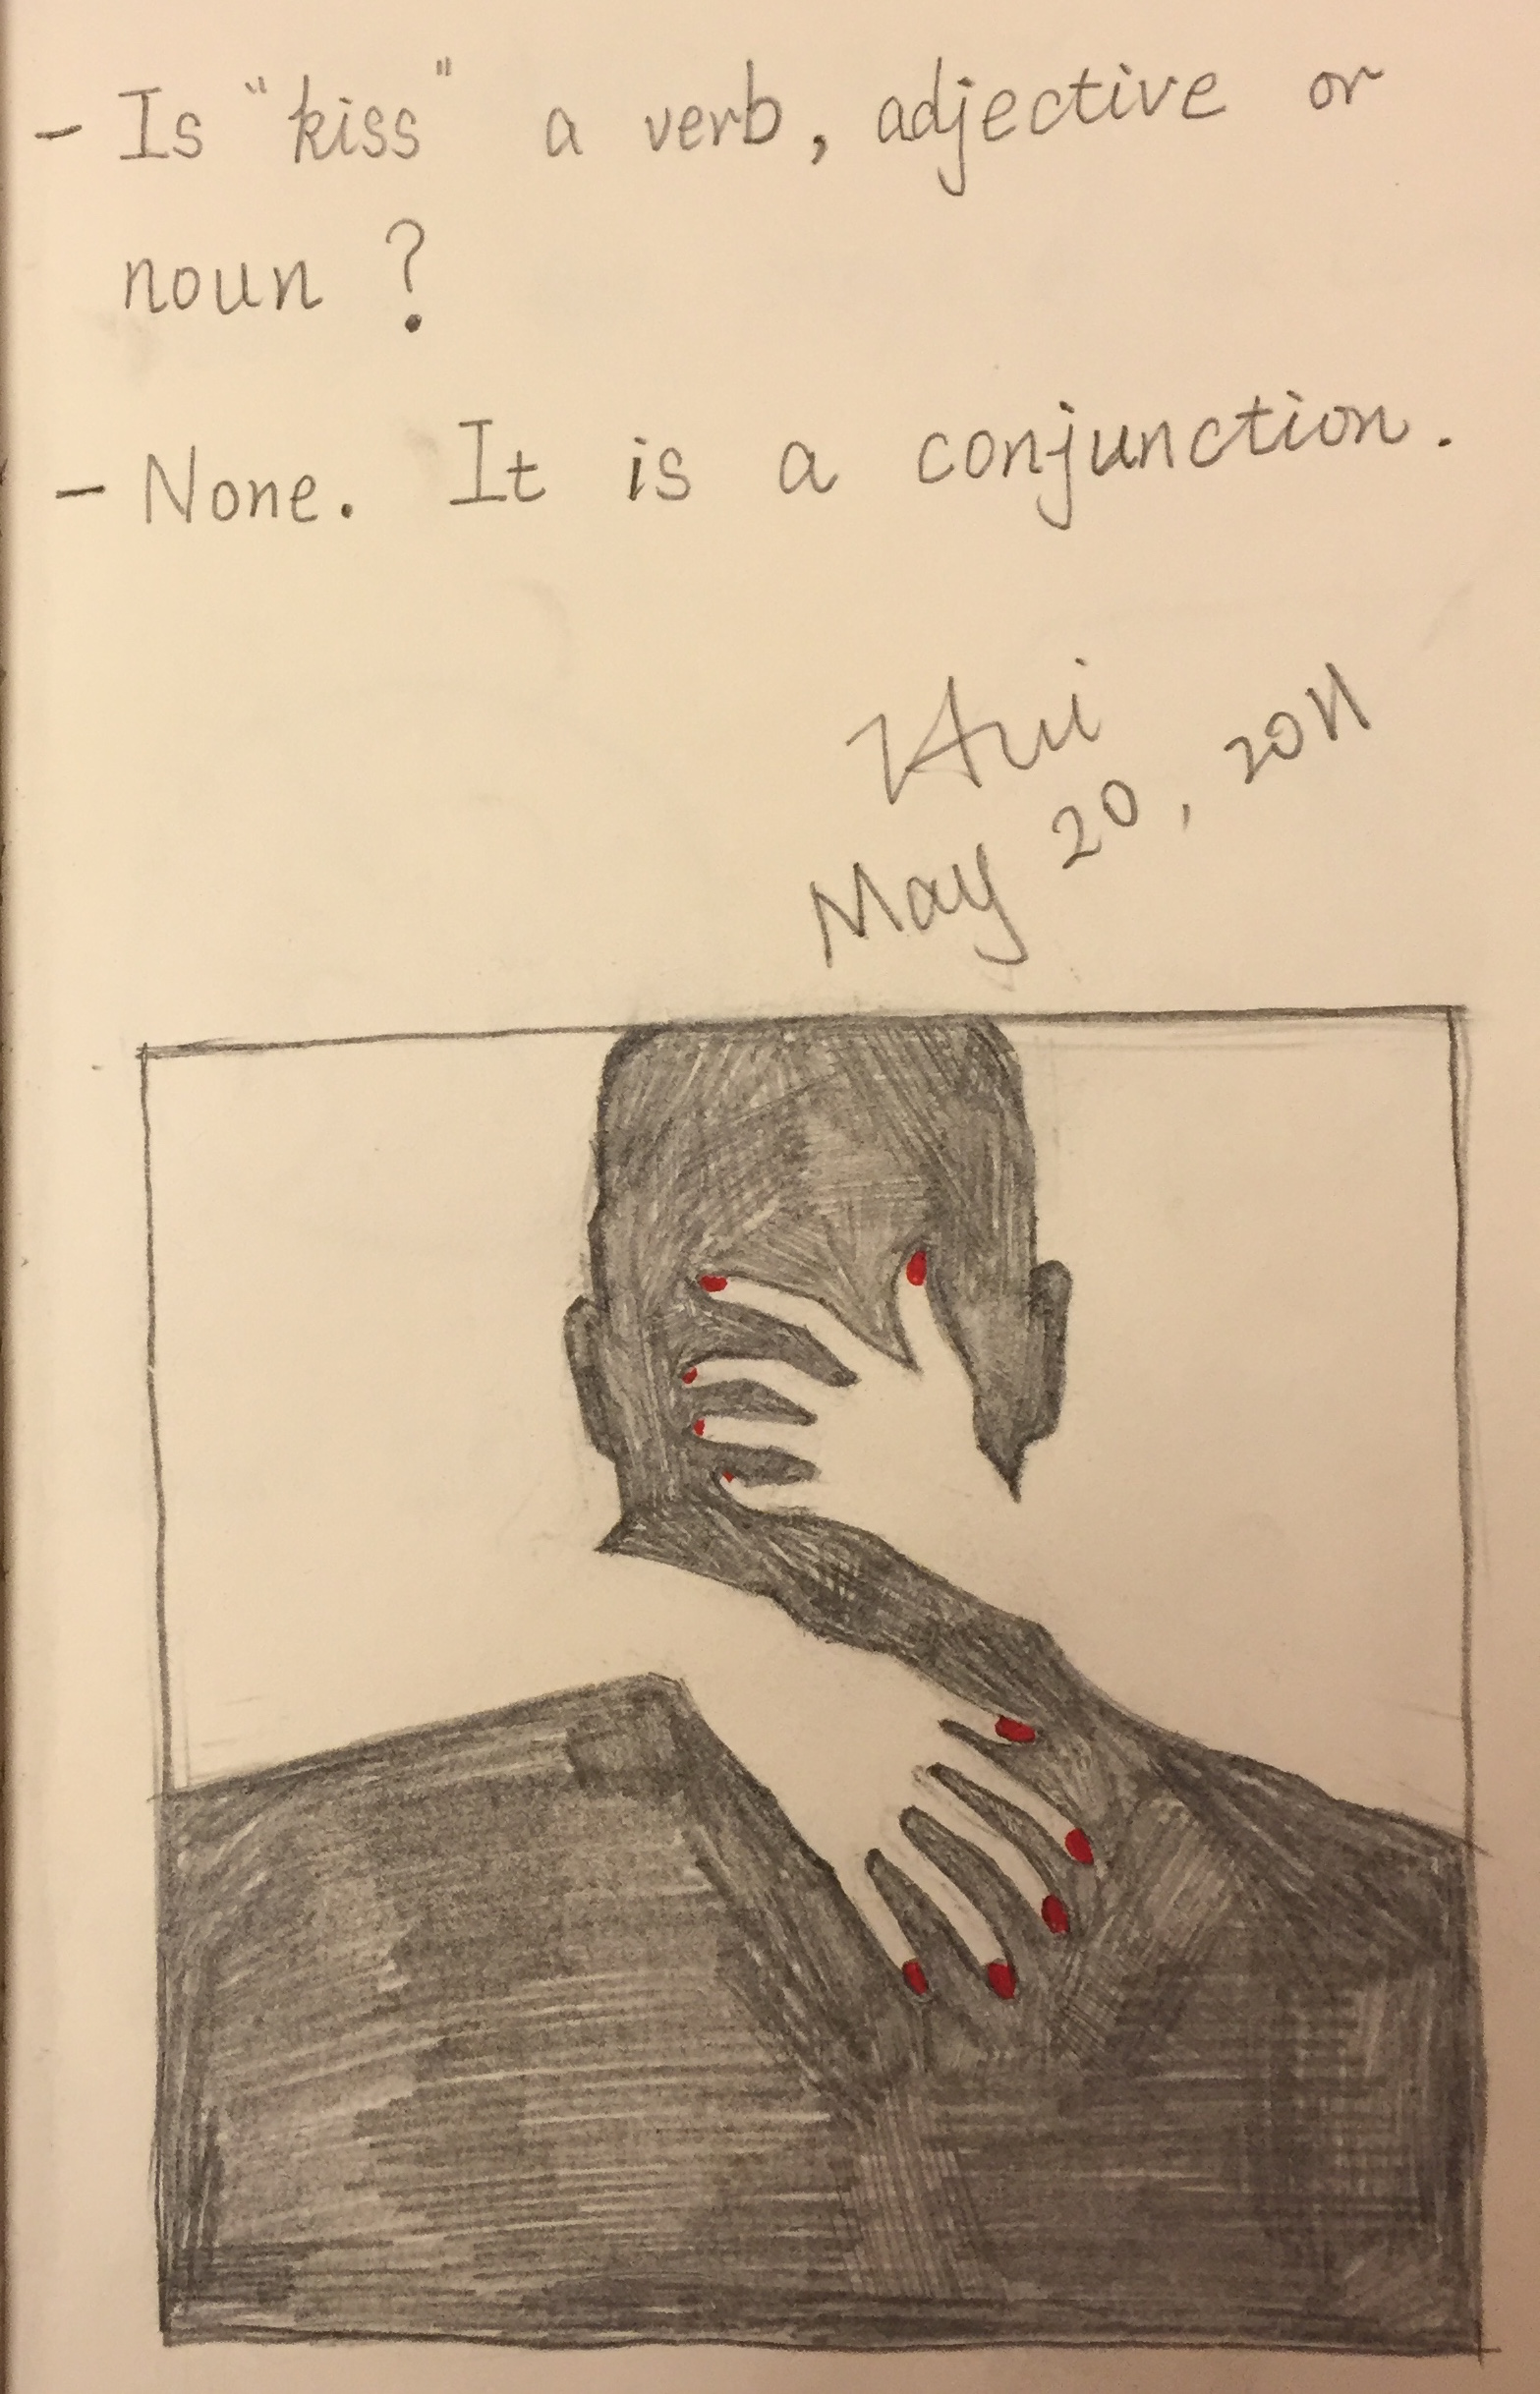 - Is "kiss" a verb, adjective or
noun ?
- None. It is a conjunction.
Hui
May 20, 2011